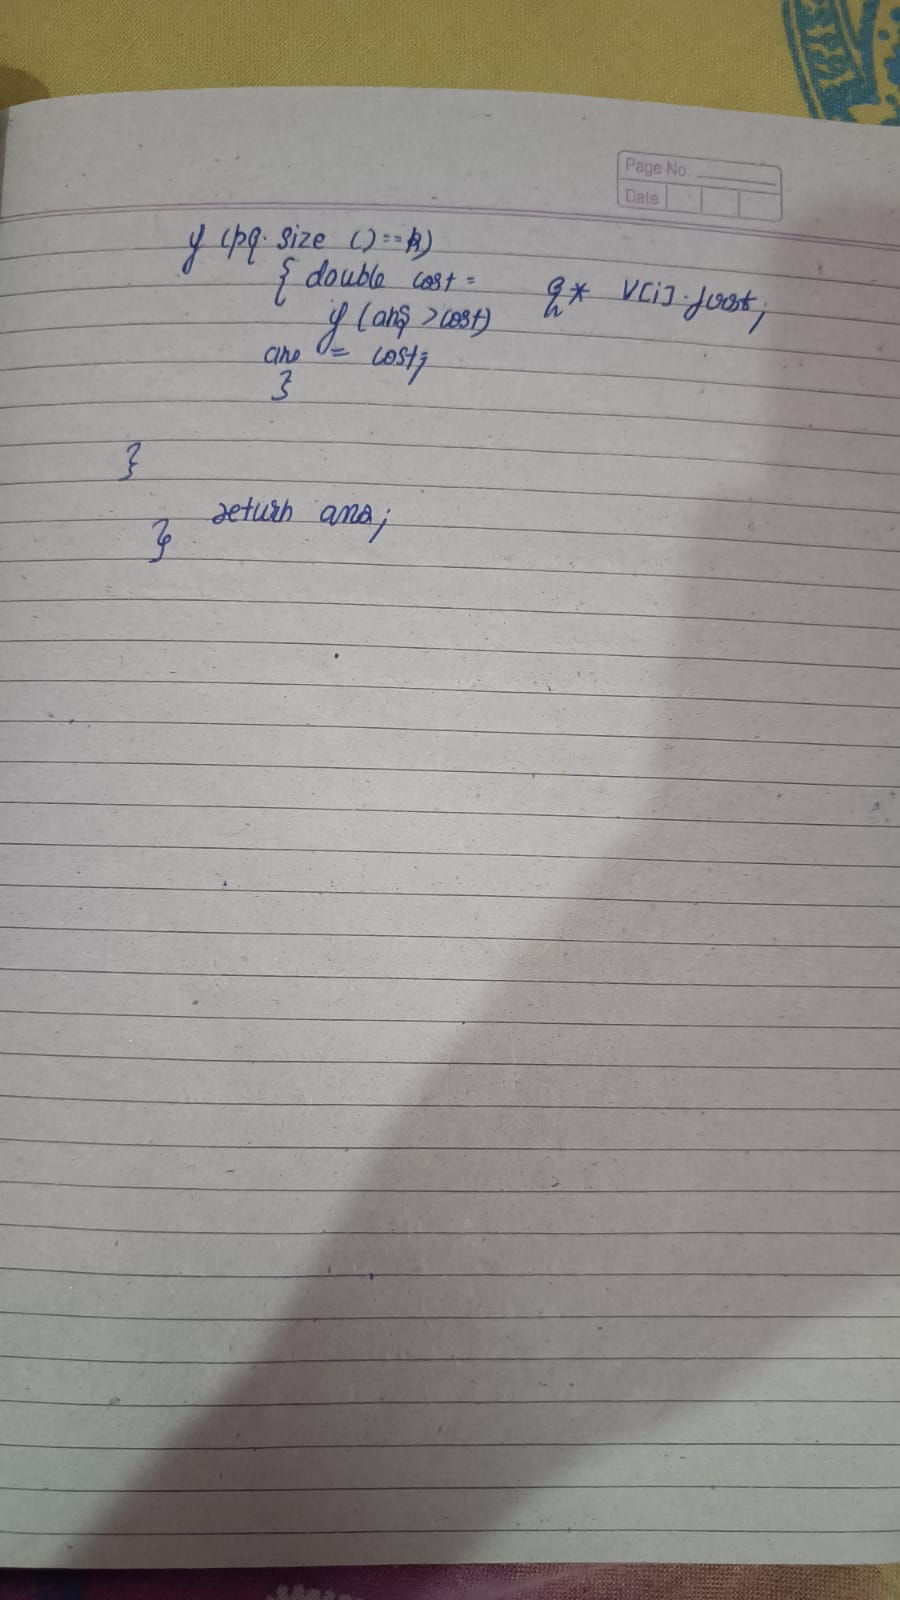 Page No.
Date
if (pq.size ()==k)
{ double cost = q * V[i].first;
if (ans > cost)
ans = cost;
}
}
return ans;
}